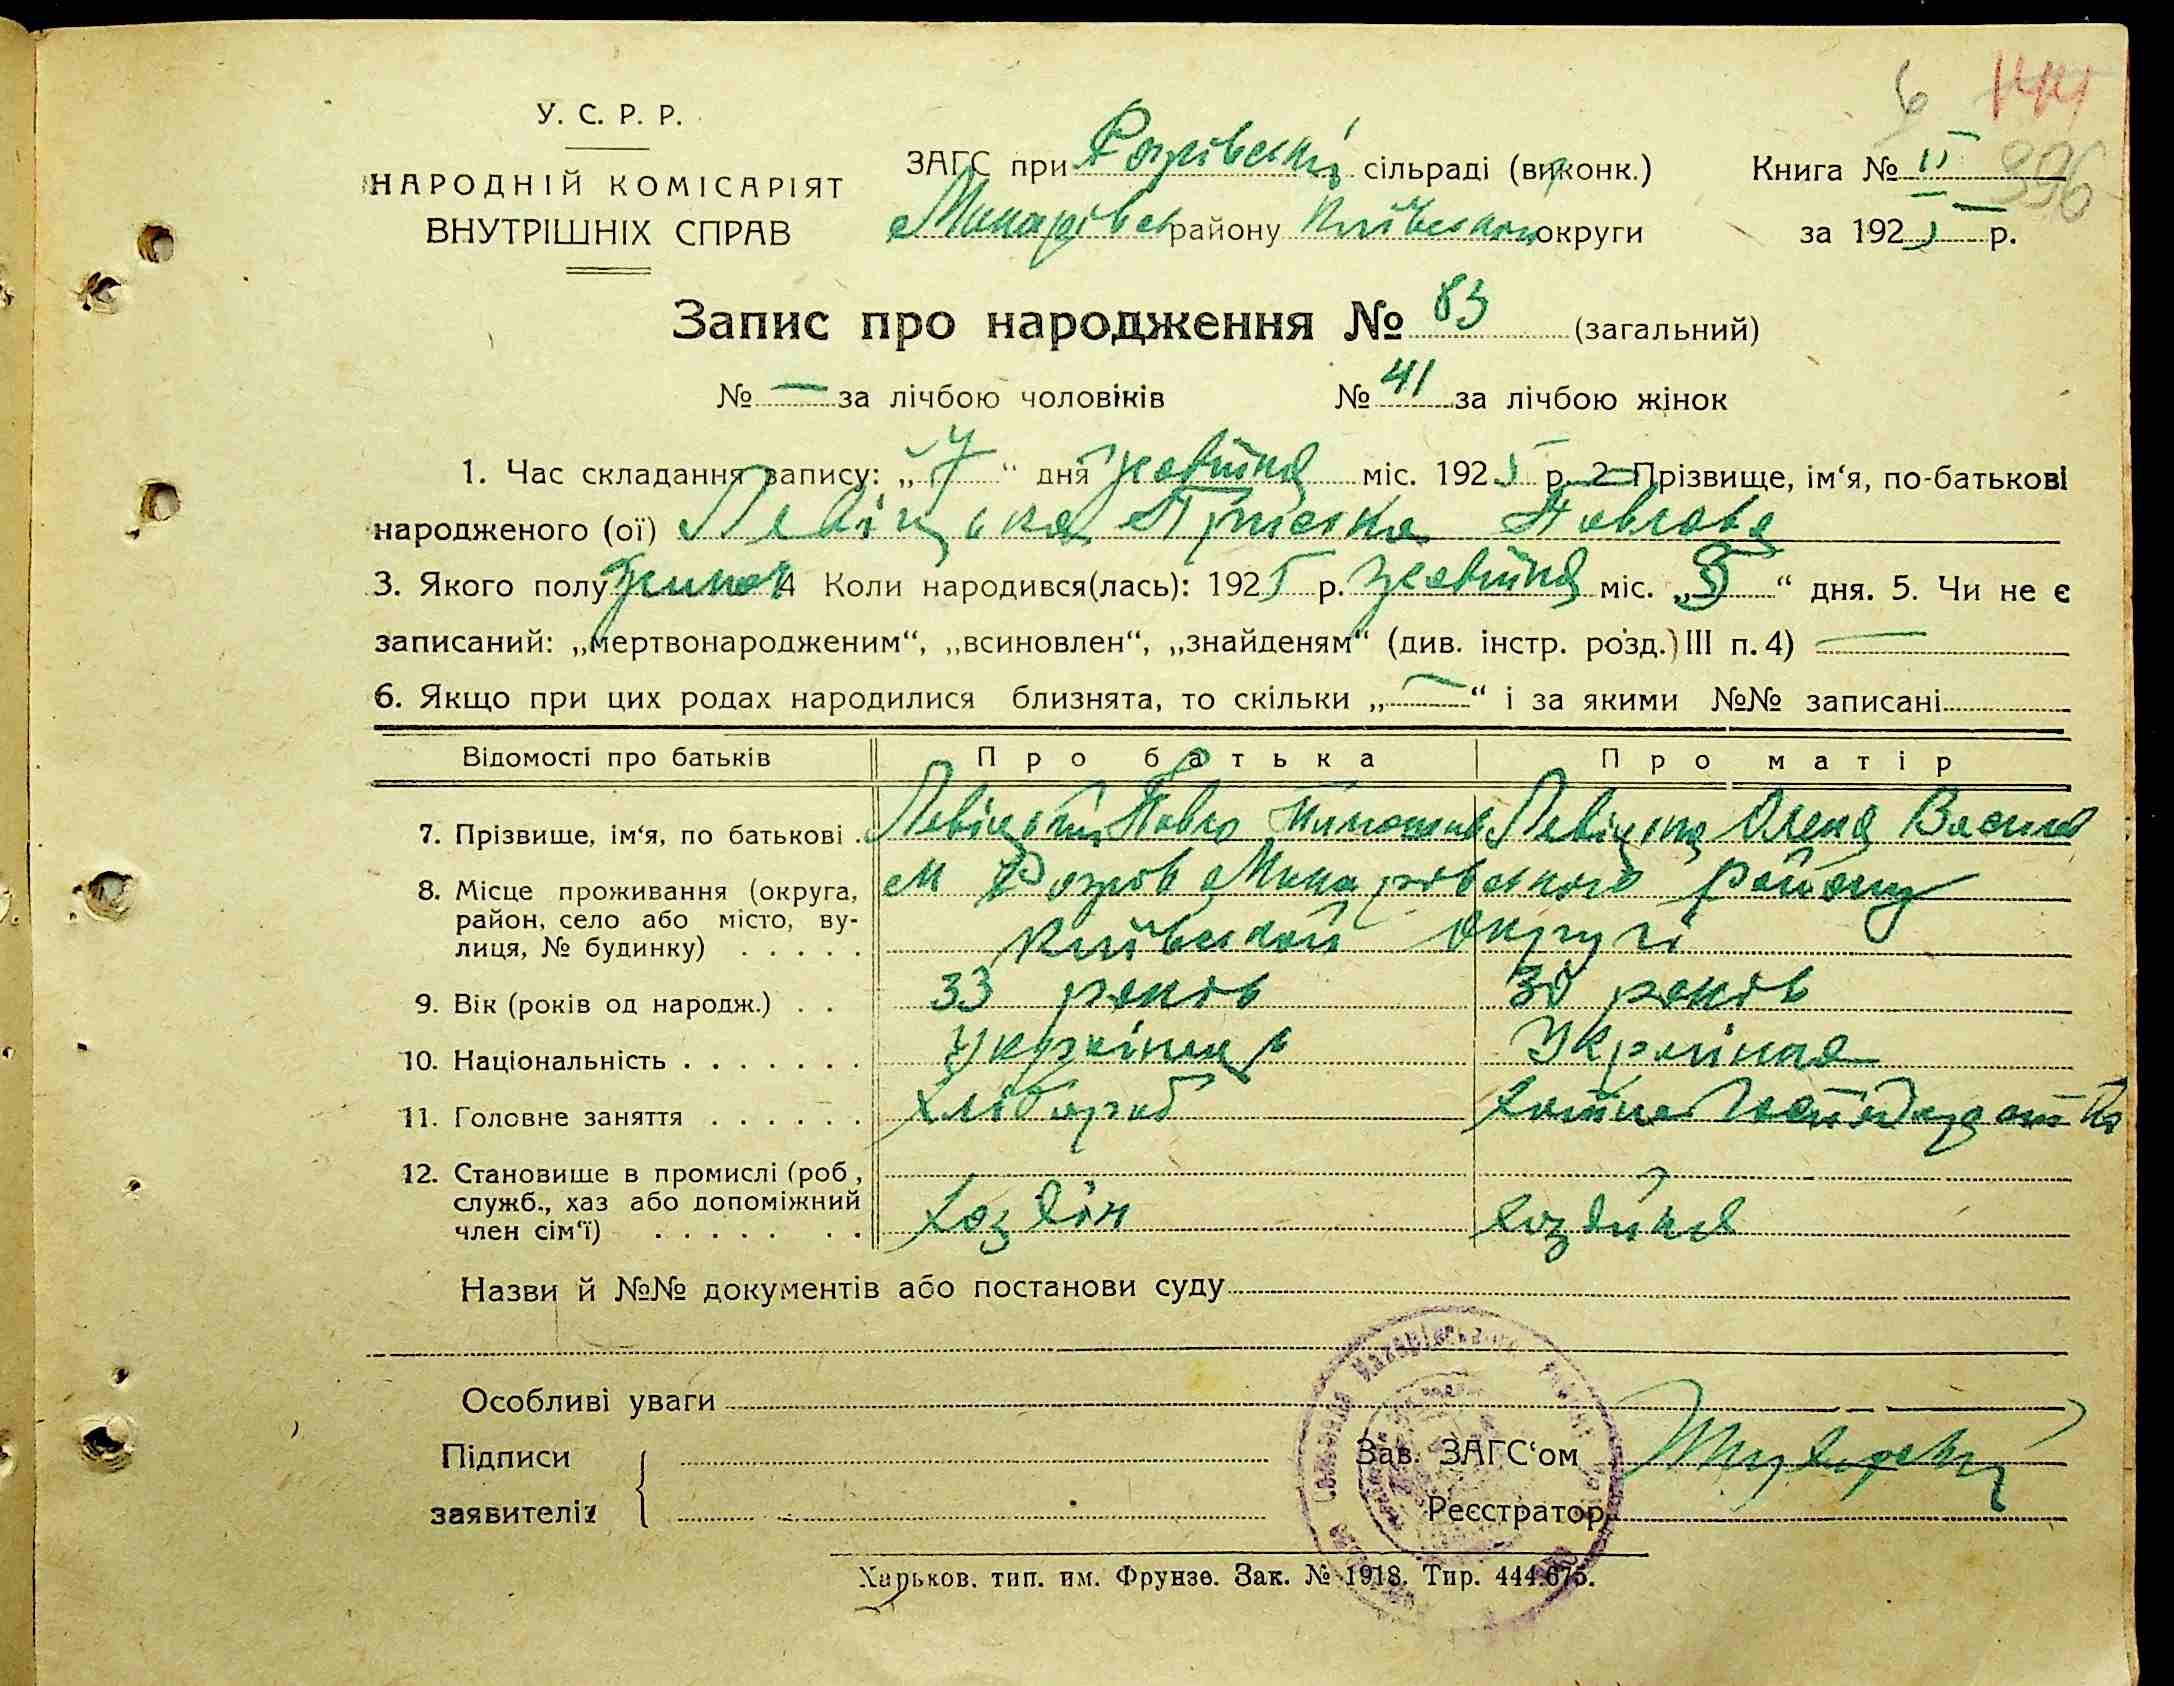 У. С. Р. Р.
НАРОДНІЙ КОМІСАРІЯТ
ВНУТРІШНІХ СПРАВ
ЗАГС при сільраді (виконк.)
Макарівськ району Київської округи
Книга № II
396
за 1925 р.
Запис про народження № 83 (загальний)
№ — за лічбою чоловіків № 41 за лічбою жінок
1. Час складання запису: „7“ дня жовтня міс. 1925 р. 2 Прізвище, ім‘я, по-батькові
народженого (ої) Левіцька Пріська Павлова
3. Якого полу 4 Коли народився(лась): 1925 р. жовтня міс. „5“ дня. 5. Чи не є
записаний: „мертвонародженим“, „всиновлен“, „знайденям“ (див. інстр. розд.) III п. 4) —
6. Якщо при цих родах народилися близнята, то скільки „—“ і за якими №№ записані
Відомості про батьків Про батька Про матір
7. Прізвище, ім‘я, по батькові . Левіцький Павло Левіцька Олена Васил
8. Місце проживання (округа, м Макарівського району
район, село або місто, ву-
лиця, № будинку) . . . . . Київської округи
9. Вік (років од народж.) . . 33 років 30 років
10. Національність . . . . . . . Українець Українка
11. Головне заняття . . . . . . Хлібороб
12. Становище в промислі (роб,
служб., хаз або допоміжний Хозяін Хозяйка
член сім‘ї) . . . . . . .
Назви й №№ документів або постанови суду
Особливі уваги
Підписи
заявителів
Зав. ЗАГС‘ом
Реєстратор
Харьков. тип. им. Фрунзе. Зак. № 1918. Тир. 444.675.